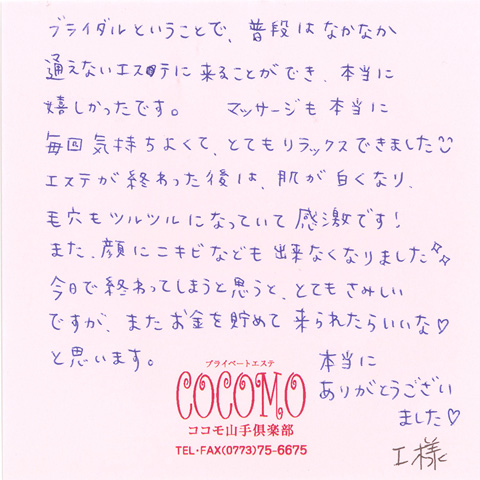 ブライダルということで、普段はなかなか
通えないエステに来ることができ、本当に
嬉しかったです。 マッサージも本当に
毎回気持ちよくて、とてもリラックスできました
エステが終わった後は、肌が白くなり、
毛穴もツルツルになっていて感激です!
また、顔にニキビなども出来なくなりました
今日で終わってしまうと思うと、とてもさみしい
ですが、またお金を貯めて来られたらいいな♡
と思います。
本当に
ありがとうござい
ました♡
プライベートエステ
COCOMO
ココモ山手倶楽部
TEL・FAX(0773)75-6675
I様